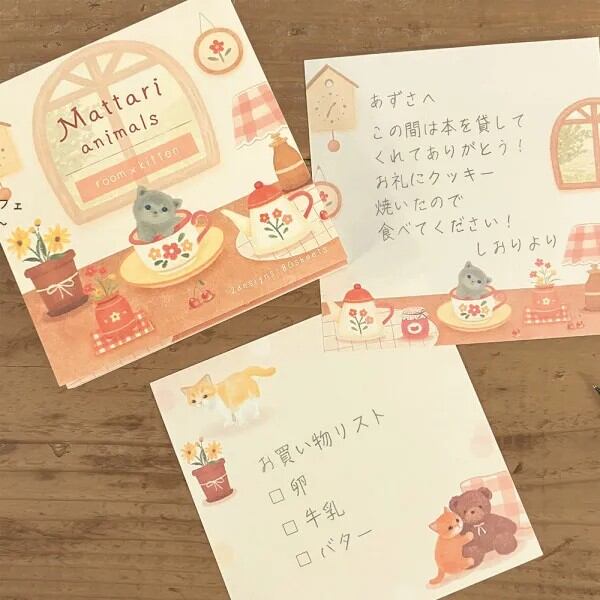 Mattari
animals
room×kitten
2designs・80sheets
フェ
〜
あずさへ
この間は本を貸して
くれてありがとう！
お礼にクッキー
焼いたので
食べてください！
しおりより
お買い物リスト
□ 卵
□ 牛乳
□ バター